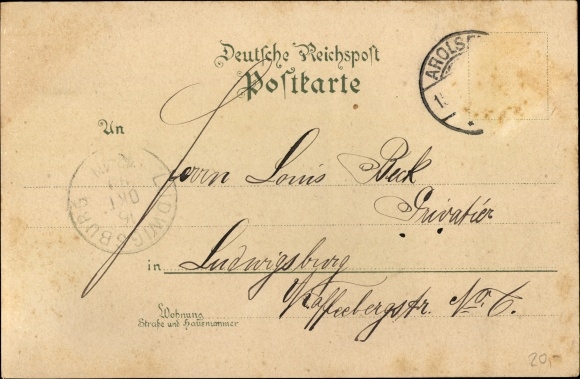 Deutsche Reichspost
Postkarte
AROLSE
An
Herrn Louis Beck
Privatier
LUDWIGSBURG
OKT
in Ludwigsburg
Kaffeebergstr. No. 6.
Wohnung
Straße und Hausnummer
20,-